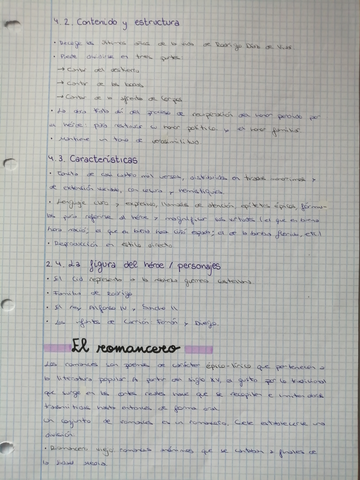 4.2. Contenido y estructura
• Recoge los últimos años de la vida de Rodrigo Díaz de Vivar
• Puede dividirse en tres partes
→ Cantar del destierro
→ Cantar de las bodas
→ Cantar de la afrenta de Corpes
• La obra trata del proceso de recuperación del honor perdido por
el héroe para restaurar su honor político y el honor familiar
• Mantiene un tono de verosimilitud
4.3. Características
• Consta de casi cuatro mil versos, distribuidos en tiradas
de extensión variable, con cesura y
• Lenguaje claro y expresivo, llamadas de atención, epítetos épicos,
para referirse al héroe y magnificar sus virtudes (el que en buena
hora nació; el que en buena hora ciñó espada; el de la barba florida, etc.)
• en estilo directo
2.4. La figura del héroe / personajes
• El Cid representa a la
• Familia de Rodrigo
• El rey Alfonso
• Los infantes de Carrión: y Diego.
El romancero
Los romances son poemas de carácter épico-lírico que pertenecen a
la literatura popular. A partir del siglo XV, el gusto por lo tradicional
que surge en las cortes reales hace que se recopilen
hasta entonces de forma oral
Un conjunto de romances es un romancero. Cabe establecerse una
división:
• Romancero viejo: romances anónimos que se a finales de
la Edad Media